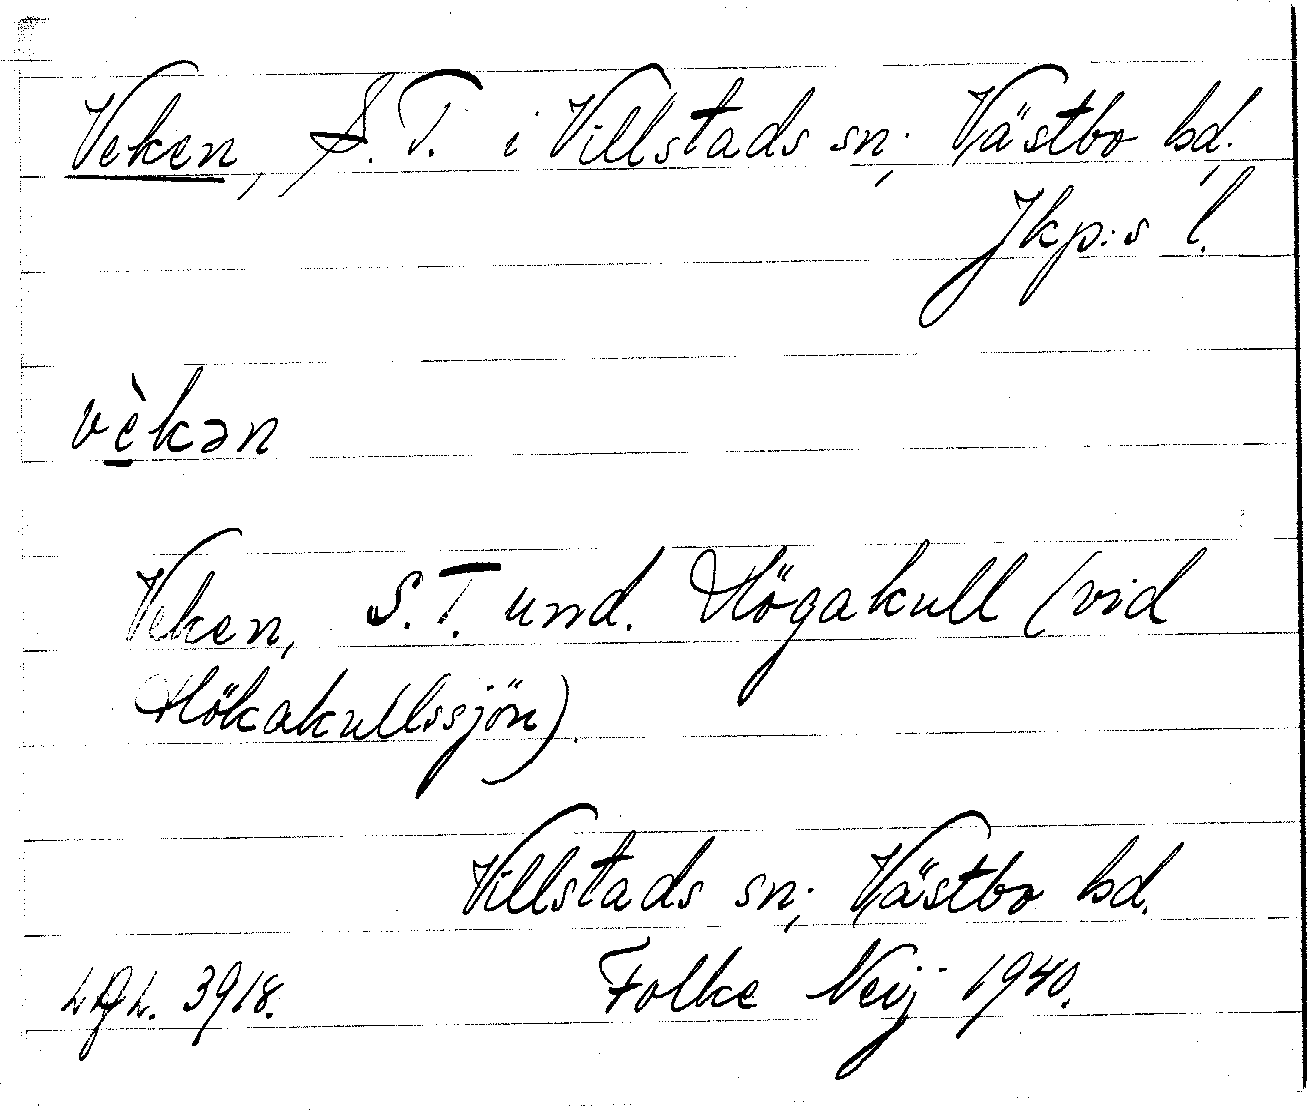 Veken, S.T. i Villstads sn; Västbo hd.,
Jkp:s l.
vèkən
Veken, S.T. und. Högakull (vid
Hökakullssjön).
Villstads sn; Västbo hd.
3918. Folke Neij 1940.